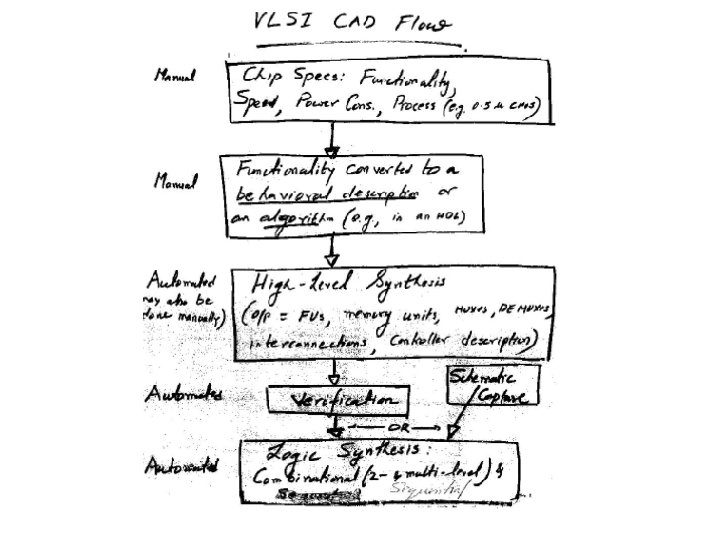 VLSI CAD Flow
Manual
Chip Specs: Functionality,
Speed, Power Cons., Process (eg. 0.5 μ CMOS)
Manual
Functionality converted to a
behavioral description or
an algorithm (e.g., in an HDL)
Automated
may also be
done manually)
High-Level Synthesis
(O/P = FUs, memory units, MUXes, DEMUXes,
interconnections, Controller description)
Automated
Verification
Schematic
Capture
OR
Automated
Logic Synthesis:
Combinational (2- & multi-level) &
Sequential